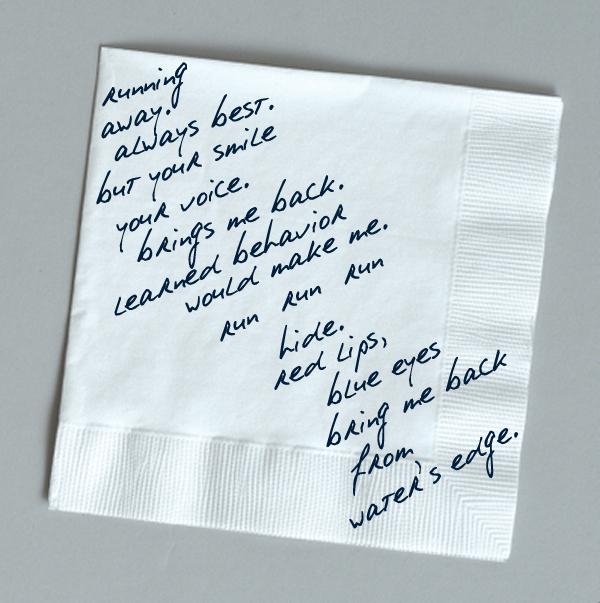 Running
away.
always best.
but your smile
your voice.
brings me back.
Learned behavior
would make me.
Run Run Run
hide.
Red Lips,
blue eyes
bring me back
from
water's edge.